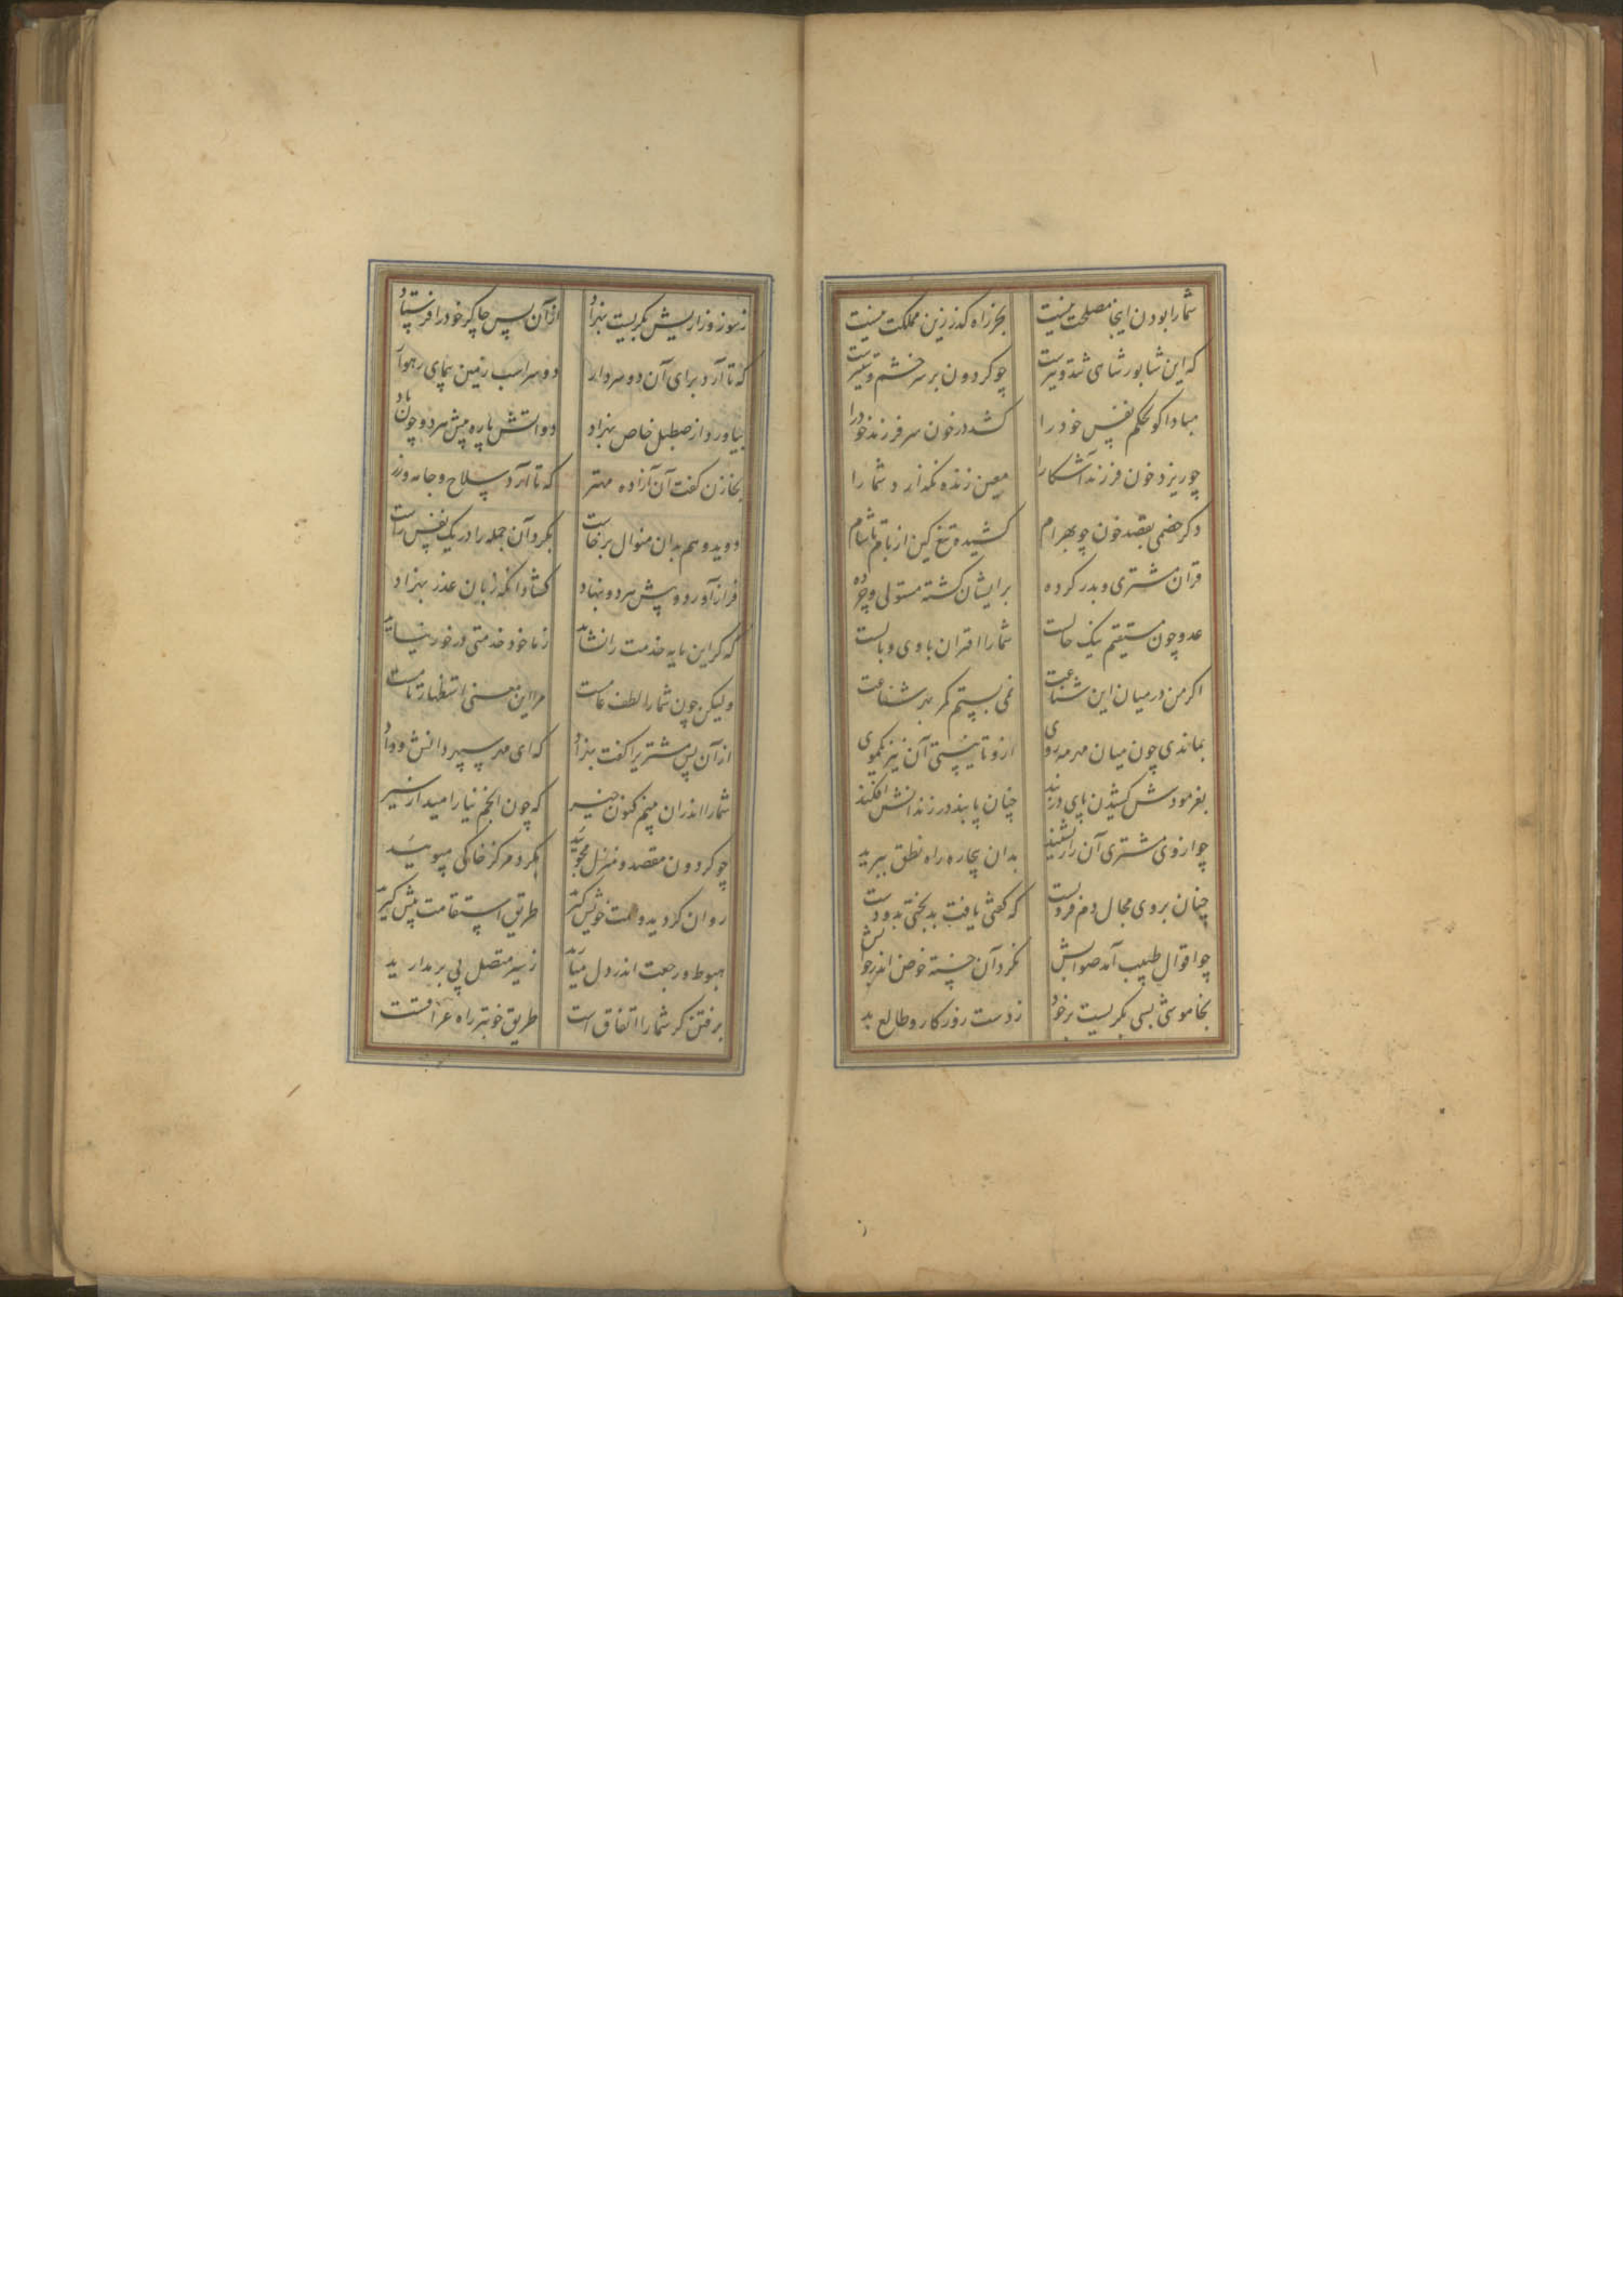 شمارا بودن اینجا مصلحت نیست بجز راه گذر زین مملکت نیست
که این شاپور شاهی تند و تیزست چو گردون بر سر خشم و ستیزست
مبادا کو بحکم نفس خود را کشد در خون سر فرزند خود را
چو ریزد خون فرزند آشکارا معین زنده نگذارد شما را
دگر خصمی بقصد خون چو بهرام کشیده تیغ کین از بام تا شام
قران مشتری و بدر کرده بر ایشان گشته مستولی و چرده
عدو چون مستقیم نیک حالست شمارا اقتران با وی وبالست
اگر من در میان این شناعت نمی بستم کمر بهر شفاعت
بماندی چون میان مهر مه روی ازو تا نیستی آن نیز یکموی
بفرمودش کشیدن پای در بند چنان پابند در زندانش افکند
چو از وی مشتری آن راز بشنید بدان بیچاره راه نطق ببرید
چنان بر وی مجال دم فروبست که گفتی یافت بدبختی بدو دست
چو اقوال طبیب آمد صوابش نکرد آن خسته خوض اندر جوابش
بخاموشی بسی بگریست بر خود ز دست روزگار و طالع بد
ز سوز و زاریش بگریست بهزاد از آن پس چاکر خود را فرستاد
که تا آرد برای آن دو سردار دو سر اسب زمین پیمای رهوار
بیاورد از صطبل خاص بهزاد دو آتش پاره پیش هر دو چون باد
بخازن گفت آن آزاده مهتر که تا آرد سلاح و جامه و زر
دوید و هم بدان منوال برخاست بکرد آن جمله را در یک نفس راست
فراز آورد و پیش هر دو بنهاد گشاد آنگه زبان عذر بهزاد
که گر این مایه خدمت را نشاید ز ما خود خدمتی در خور نیاید
ولیکن چون شمارا لطف عامست مرا این معنی استظهار تامست
از آن پس مشتریرا گفت بهزاد که ای مهر سپهر دانش و داد
شمارا اندران بینم کنون خیر که چون انجم نیارامید از سیر
چو گردون مقصد و منزل مجویید بگرد مرکز خاکی مپویید
روان گردید و سمت خویش گیرید طریق استقامت پیش گیرید
هبوط و رجعت اندر دل میارید ز سیر متصل پی بر مدارید
برفتن گر شمارا اتفاق است طریق خوبتر راه عراقست